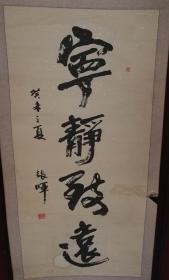 寧靜致遠
癸未之夏
張暉